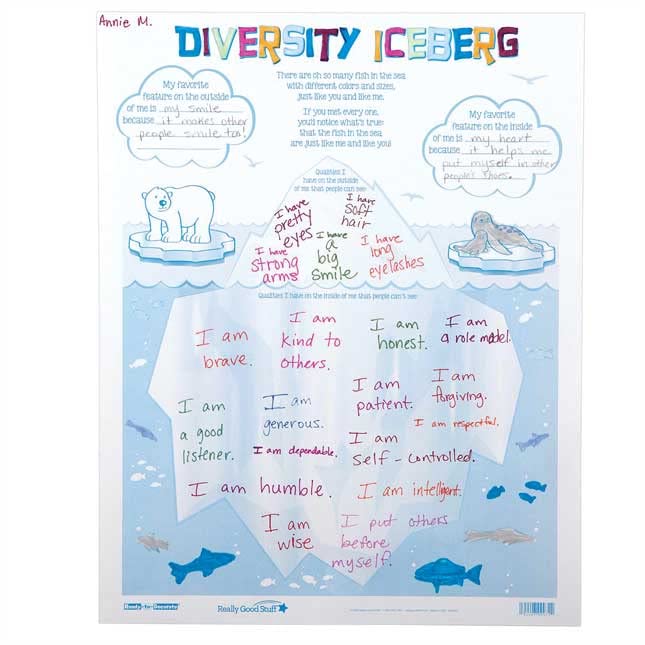 Annie M.
DIVERSITY ICEBERG
There are oh so many fish in the sea
with different colors and sizes,
just like you and like me.
If you met every one,
you'll notice what's true:
that the fish in the sea
are just like me and like you!
My favorite
feature on the outside
of me is my smile
because it makes other
people smile too!
My favorite
feature on the inside
of me is my heart
because it helps me
put myself in other
people's shoes.
Qualities I
have on the outside
of me that people can see:
I have
pretty
eyes
I have
soft
hair
I have
strong
arms
I have
a
big
smile
I have
long
eyelashes
Qualities I have on the inside of me that people can't see:
I am
brave.
I am
kind to
others.
I am
honest.
I am
a role model.
I am
a good
listener.
I am
generous.
I am
patient.
I am
forgiving.
I am respectful.
I am dependable.
I am
self-controlled.
I am humble.
I am intelligent.
I am
wise
I put others
before
myself.
Ready-to-Decorate
Really Good Stuff